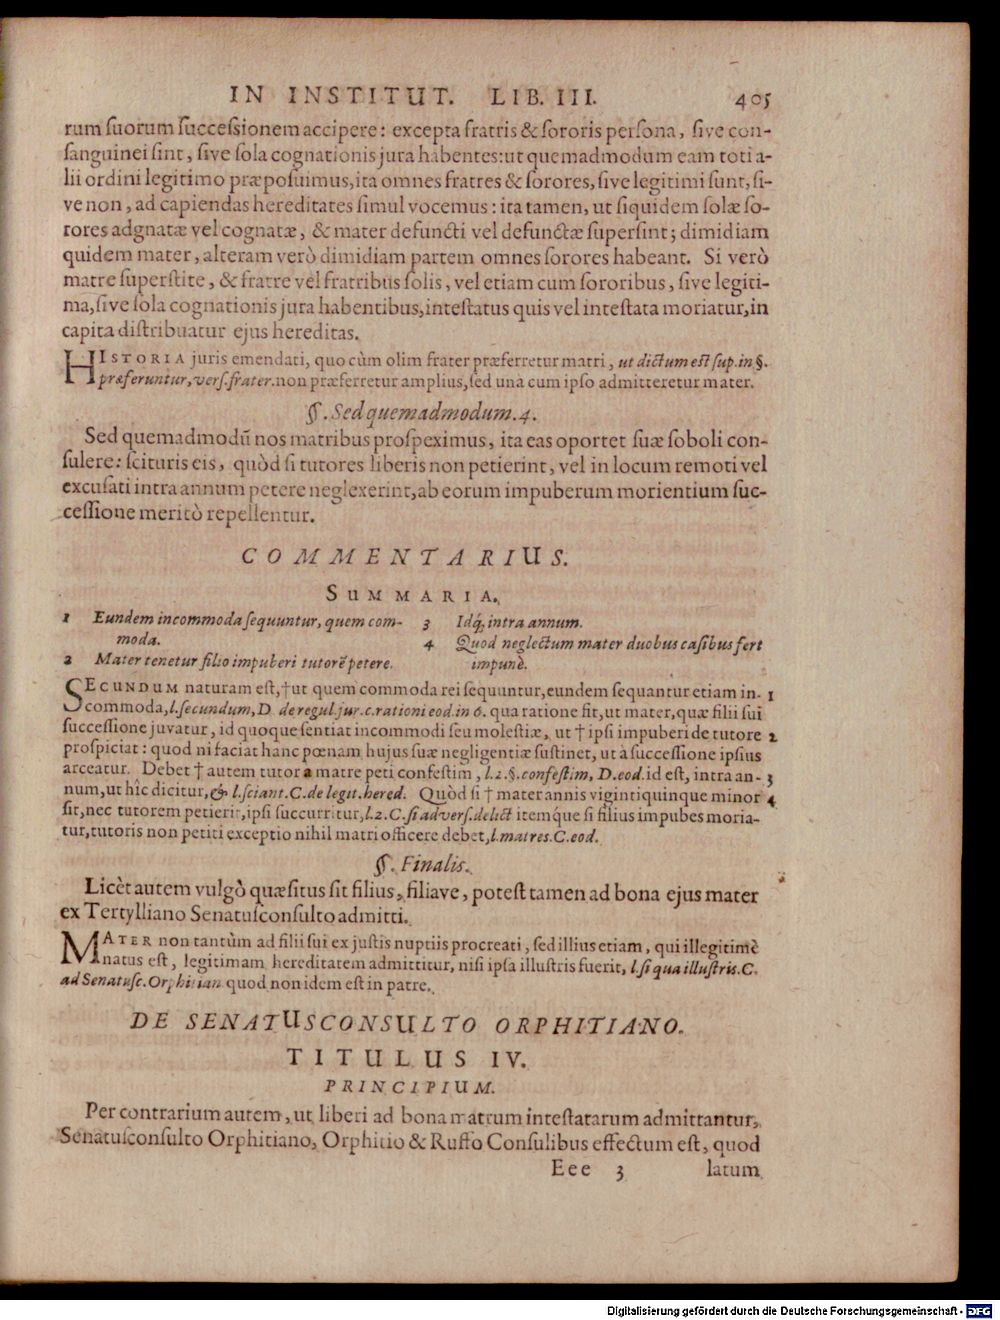 IN INSTITUT. LIB. III. 405
rum suorum successionem accipere: excepta fratris & sororis persona, sive con-
sanguinei sint, sive sola cognationis jura habentes: ut quemadmodum eam toti a-
lii ordini legitimo præposuimus, ita omnes fratres & sorores, sive legitimi sunt, si-
ve non, ad capiendas hereditates simul vocemus: ita tamen, ut siquidem solæ so-
rores adgnatæ vel cognatæ, & mater defuncti vel defunctæ supersint; dimidiam
quidem mater, alteram verò dimidiam partem omnes sorores habeant. Si verò
matre superstite, & fratre vel fratribus solis, vel etiam cum sororibus, sive legiti-
ma, sive sola cognationis jura habentibus, intestatus quis vel intestata moriatur, in
capita distribuatur ejus hereditas.
HISTORIA juris emendati, quo cùm olim frater præferretur matri, ut dictum est sup. in §.
præferuntur, vers. frater. non præferretur amplius, sed una cum ipso admitteretur mater.
§. Sed quemadmodum. 4.
Sed quemadmodū nos matribus prospeximus, ita eas oportet suæ soboli con-
sulere: scituris eis, quòd si tutores liberis non petierint, vel in locum remoti vel
excusati intra annum petere neglexerint, ab eorum impuberum morientium suc-
cessione meritò repellentur.
COMMENTARIUS.
SUMMARIA.
1 Eundem incommoda sequuntur, quem com-
moda.
2 Mater tenetur filio impuberi tutorē petere.
3 Idq́, intra annum.
4 Quod neglectum mater duobus casibus fert
impunè.
SECUNDUM naturam est, † ut quem commoda rei sequuntur, eundem sequantur etiam in- 1
commoda, l. secundum, D. de regul jur. c. rationi eod. in 6. qua ratione fit, ut mater, quæ filii sui
successione juvatur, id quoque sentiat incommodi seu molestiæ, ut † ipsi impuberi de tutore 2
prospiciat: quod ni faciat hanc pœnam hujus suæ negligentiæ sustinet, ut à successione ipsius
arceatur. Debet † autem tutor a matre peti confestim, l. 2. §. confestim, D. eod. id est, intra an- 3
num, ut hîc dicitur, & l. sciant. C. de legit. hered. Quòd si † mater annis vigintiquinque minor 4
sit, nec tutorem petierit, ipsi succurritur, l. 2. C. si advers. delict itemq́ue si filius impubes moria-
tur, tutoris non petiti exceptio nihil matri officere debet, l. matres. C. eod.
§. Finalis.
Licèt autem vulgò quæsitus sit filius, filiave, potest tamen ad bona ejus mater
ex Tertylliano Senatusconsulto admitti.
MATER non tantùm ad filii sui ex justis nuptiis procreati, sed illius etiam, qui illegitimè
natus est, legitimam hereditatem admittitur, nisi ipsa illustris fuerit, l. si qua illustris. C.
ad Senatusc. Orphitian. quod non idem est in patre.
DE SENATUSCONSULTO ORPHITIANO.
TITULUS IV.
PRINCIPIUM.
Per contrarium autem, ut liberi ad bona matrum intestatarum admittantur,
Senatusconsulto Orphitiano, Orphitio & Ruffo Consulibus effectum est, quod
Eee 3 latum
Digitalisierung gefördert durch die Deutsche Forschungsgemeinschaft - DFG